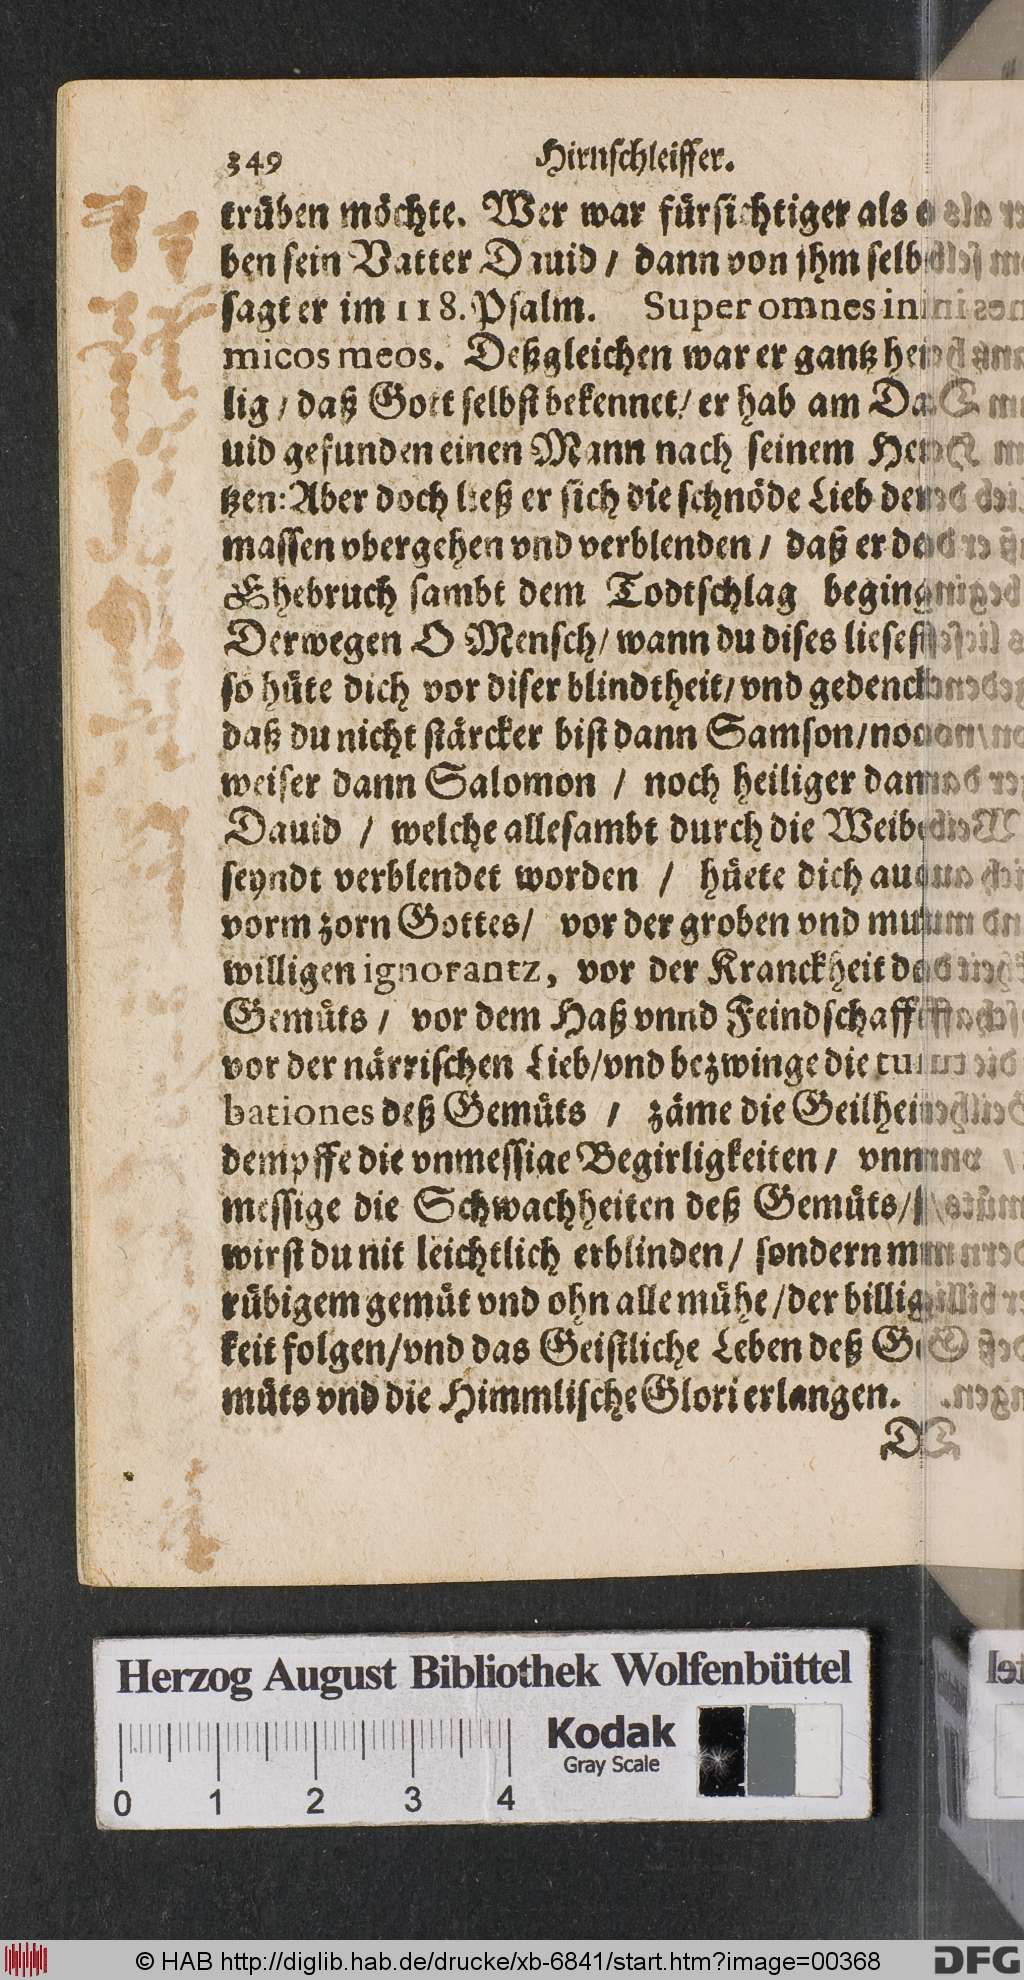 349 Hirnschleiffer.
trüben möchte. Wer war fürsichtiger als e
ben sein Vatter Dauid / dann von jhm selb
sagt er im 118. Psalm. Super omnes ini
micos meos. Deßgleichen war er gantz hei
lig / daß Gott selbst bekennet / er hab am Da
uid gefunden einen Mann nach seinem Her
tzen: Aber doch ließ er sich die schnöde Lieb der
massen vbergehen vnd verblenden / daß er de
Ehebruch sambt dem Todtschlag beging
Derwegen O Mensch / wann du dises liesest
so hüte dich vor diser blindtheit / vnd gedenck
daß du nicht stärcker bist dann Samson / noc
weiser dann Salomon / noch heiliger dann
Dauid / welche allesambt durch die Weibe
seyndt verblendet worden / hüete dich auc
vorm zorn Gottes / vor der groben vnd mu
willigen ignorantz, vor der Kranckheit de
Gemüts / vor dem Haß vnnd Feindschafft
vor der närrischen Lieb / vnd bezwinge die tur
bationes deß Gemüts / zäme die Geilheit
dempffe die vnmessige Begirligkeiten / vnn
messige die Schwachheiten deß Gemüts /
wirst du nit leichtlich erblinden / sondern m
rübigem gemüt vnd ohn alle mühe / der billig
keit folgen / vnd das Geistliche Leben deß Ge
müts vnd die Himmlische Glori erlangen.
D
Herzog August Bibliothek Wolfenbüttel
Kodak
Gray Scale
0 1 2 3 4
© HAB http://diglib.hab.de/drucke/xb-6841/start.htm?image=00368
DFG